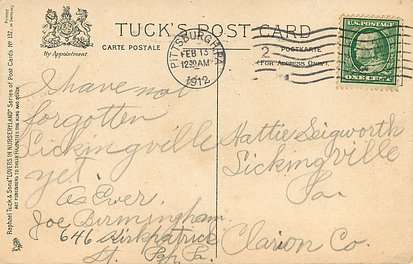 TUCK'S POST CARD
CARTE POSTALE
POSTKARTE
(FOR ADDRESS ONLY)
By Appointment
PITTSBURGH, PA.
FEB 13
1230 AM
1912
2
U.S. POSTAGE
ONE CENT
Raphael Tuck & Sons' "LOVERS IN NURSERYLAND" Series of Post Cards No 132
ART PUBLISHERS TO THEIR MAJESTIES THE KING AND QUEEN
I have not
forgotten
Sickingville
yet.
As Ever.
Joe Birmingham.
646 Kirkpatrick
St. Pgh Pa.
Hattie Seigworth
Sickingville
Pa.
Clarion Co.